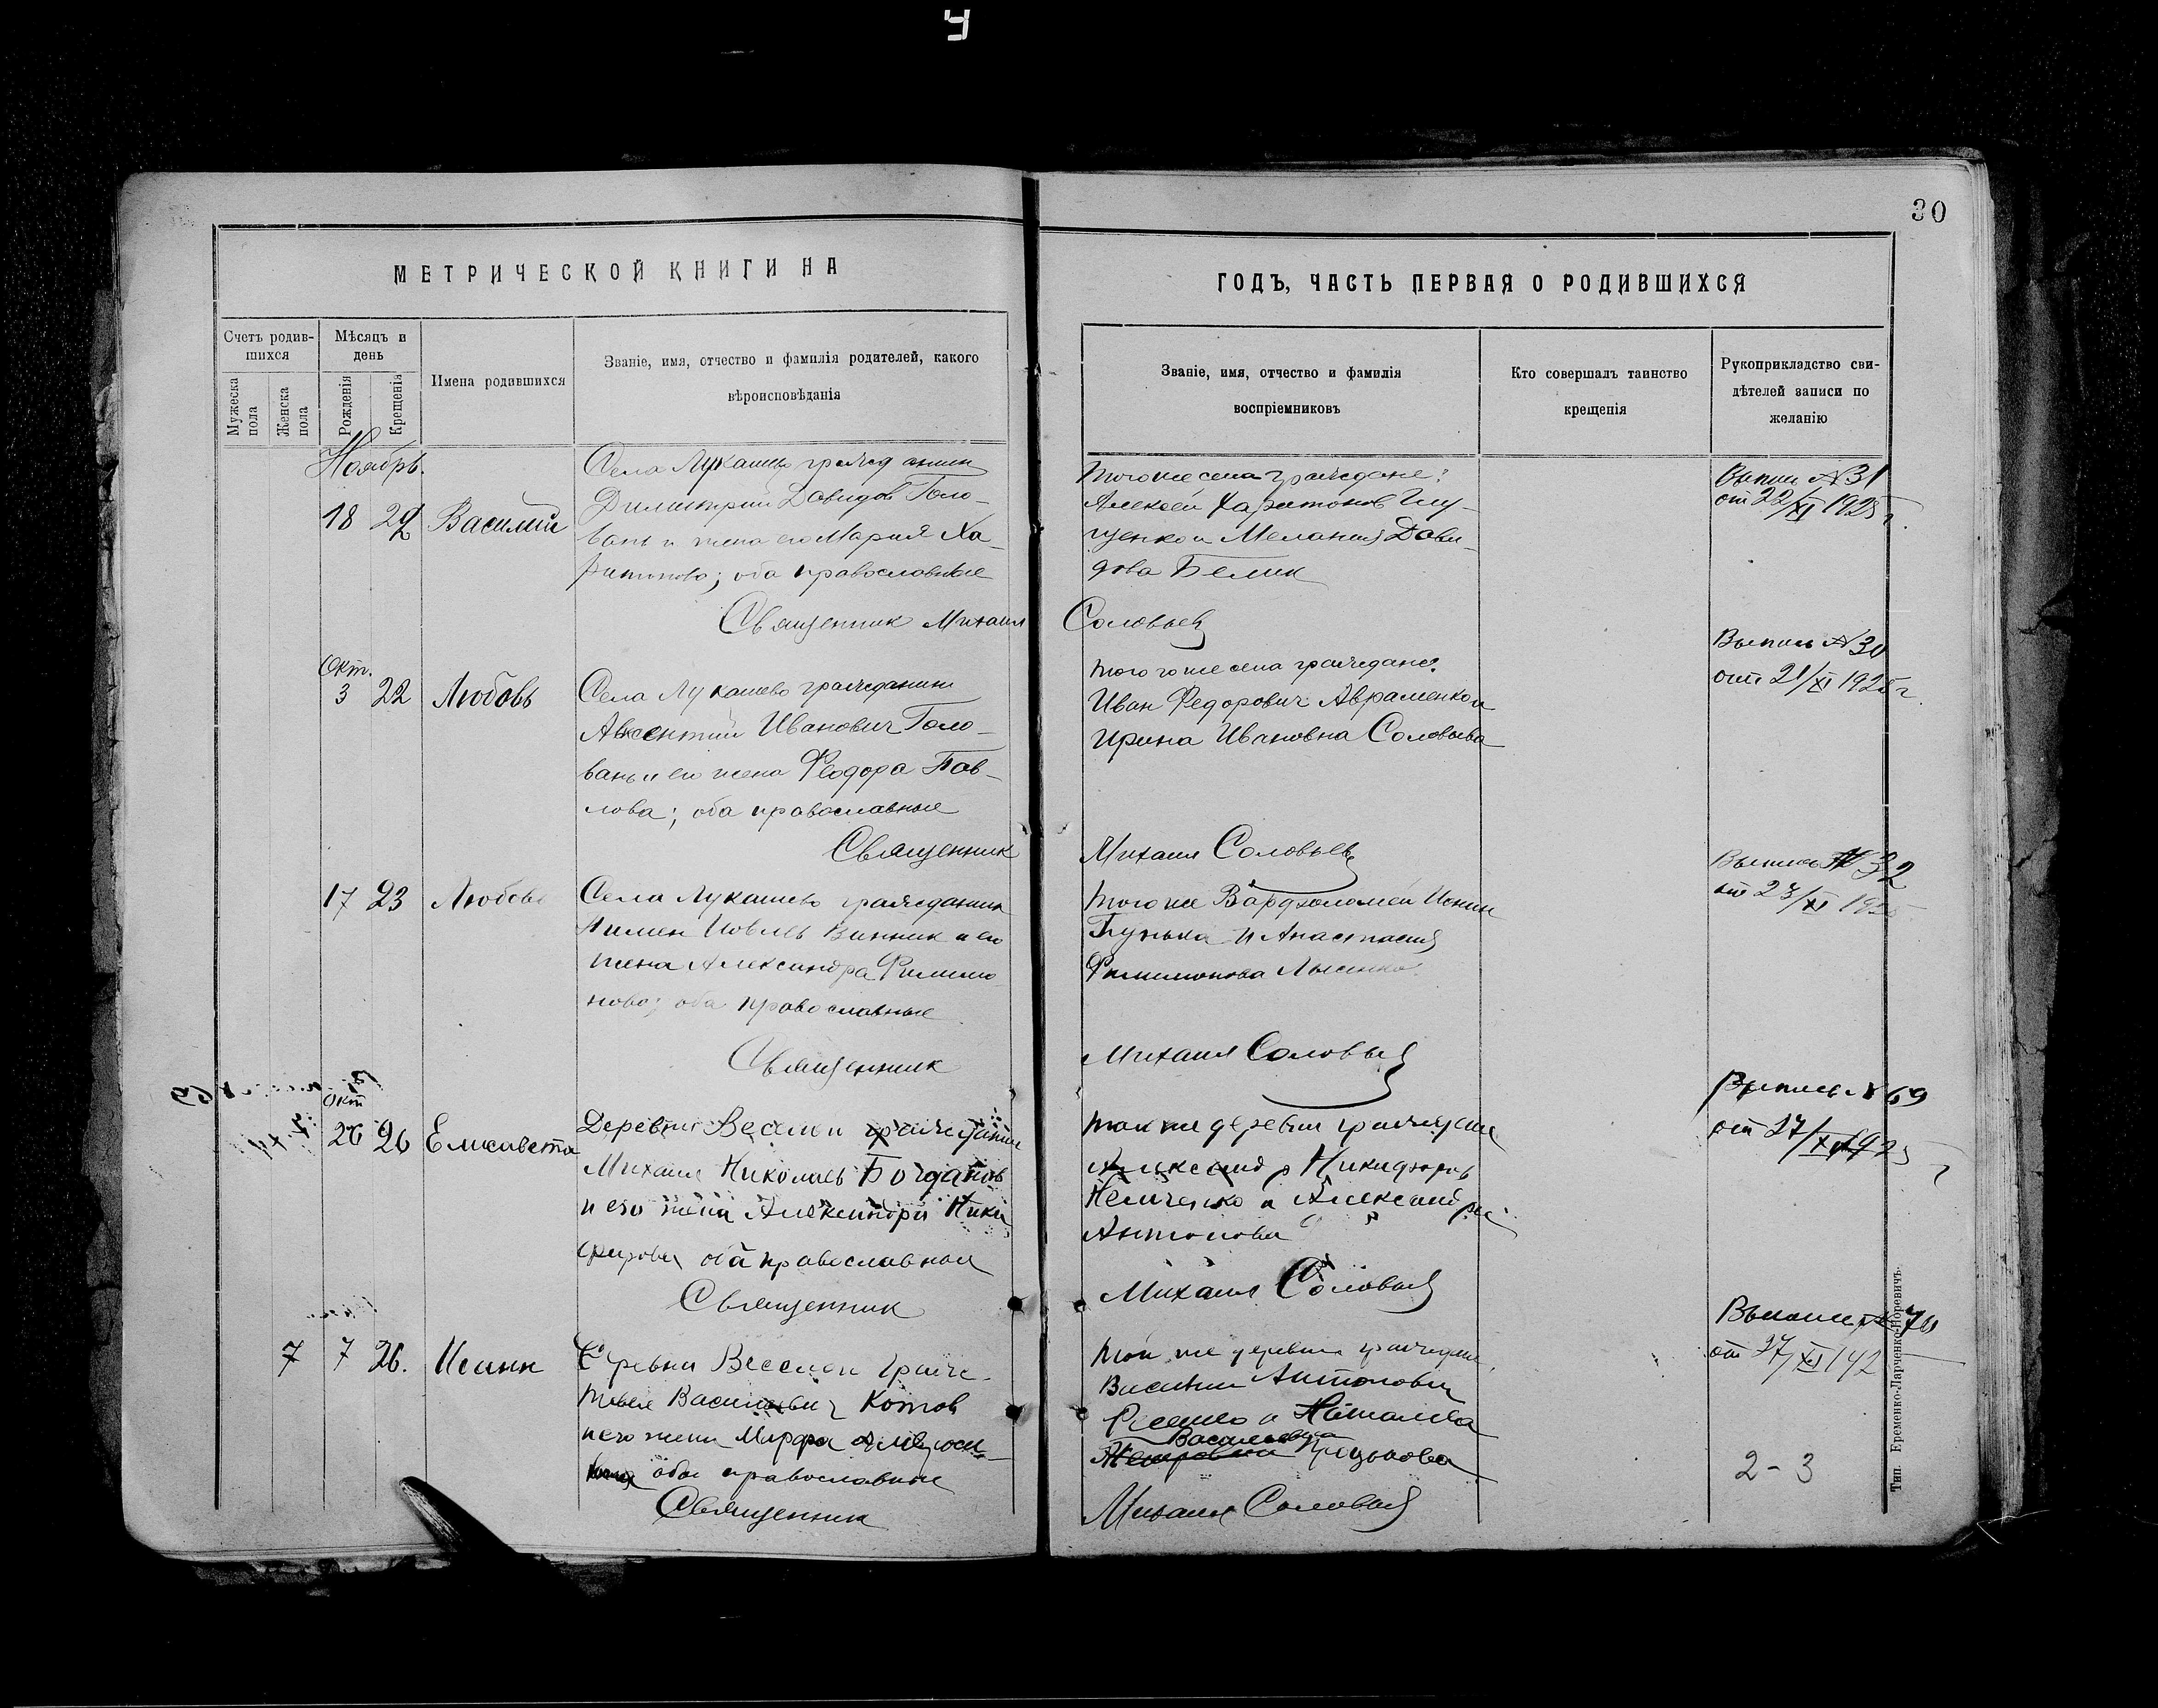 30
МЕТРИЧЕСКОЙ КНИГИ НА
ГОДЪ, ЧАСТЬ ПЕРВАЯ О РОДИВШИХСЯ
Счетъ родив-
шихся
Мужеска пола
Женска пола
Мѣсяцъ и
день
Рожденія
Крещенія
Имена родившихся
Званіе, имя, отчество и фамилія родителей, какого
вѣроисповѣданія
Званіе, имя, отчество и фамилія
воспріемниковъ
Кто совершалъ таинство
крещенія
Рукоприкладство сви-
дѣтелей записи по
желанію
Ноябрь.
18 22 Василий
Села Лукашево гражданин
Димитрий Давидов Голо-
вань и жена его Мария Ха-
ритонова; оба православные
Священник Михаил Соловьев
того же села граждане:
Алексей Харитонов
и Мелания Дави-
дова Белик
Выпись № 31
от 22/XI 1925 г.
Окт.
3 22 Любовь
Села Лукашево гражданин
Авксентий Иванович Голо-
вань и его жена Феодора Пав-
лова; оба православные
Священник Михаил Соловьев
того же села граждане:
Иван Федорович Авраменко и
Ирина Ивановна Соловьева
Выпись № 30
от 21/XI 1925 г.
17 23 Любовь
Села Лукашево гражданин
Пимен Иовлев Винник и его
жена Александра Филимо
нова; оба православные
Священник Михаил Соловьев
того же Варфоломей
и Анастасия
Филимонова Лысенко
Выпись № 32
от 23/XI
Окт
26 26 Елисавета
Деревни Веселой гражданин
Михаил Николаев Богданов
и его жена Александра Ники
форова оба православные
Священник Михаил Соловьев
той же деревни граждане
Александр Никифоров
и Александра
Антонова
Выпись № 69
от 27/XI 1925
7 7 26.
Деревни Веселой гражд.
Васильевич Котов
и его жена Марфа
оба православные
Священник Михаил Соловьев
той же деревни граждане
Василий Антонович
и Наталия
Васильевна
Выпись № 70
от 27/XI 192
2-3
Тип. Еременко-Ларченко-Норевичъ.